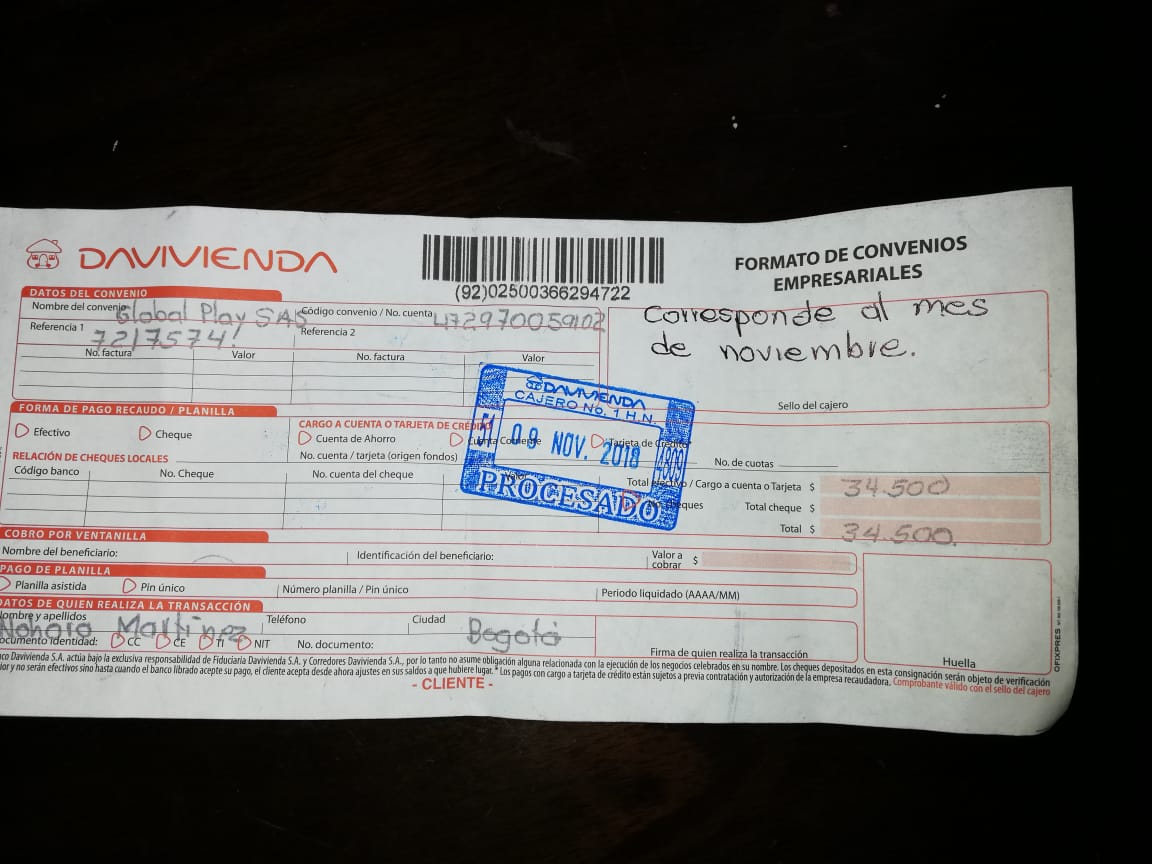 DAVIVIENDA
(92)02500366294722
FORMATO DE CONVENIOS
EMPRESARIALES
DATOS DEL CONVENIO
Nombre del convenio Global Play SAS Código convenio / No. cuenta 472970059102
Referencia 1 7217574 Referencia 2
No. factura Valor No. factura Valor
Corresponde al mes
de noviembre.
Sello del cajero
FORMA DE PAGO RECAUDO / PLANILLA
Efectivo Cheque
CARGO A CUENTA O TARJETA DE CRÉDITO
Cuenta de Ahorro Cuenta Corriente Tarjeta de Crédito
RELACIÓN DE CHEQUES LOCALES
No. cuenta / tarjeta (origen fondos)
No. de cuotas
Código banco No. Cheque No. cuenta del cheque
DAVIVIENDA
CAJERO No. 1 H.N.
09 NOV. 2018
PROCESADO
Total efectivo / Cargo a cuenta o Tarjeta $ 34.500
No. cheques Total cheque $
Total $ 34.500.
COBRO POR VENTANILLA
Nombre del beneficiario: Identificación del beneficiario: Valor a cobrar $
PAGO DE PLANILLA
Planilla asistida Pin único Número planilla / Pin único Periodo liquidado (AAAA/MM)
DATOS DE QUIEN REALIZA LA TRANSACCIÓN
Nombre y apellidos Teléfono Ciudad
Martinez Bogotá
Documento Identidad: CC CE TI NIT No. documento: Firma de quien realiza la transacción
Huella
OFIXPRES
Davivienda S.A. actúa bajo la exclusiva responsabilidad de Fiduciaria Davivienda S.A. y Corredores Davivienda S.A., por lo tanto no asume obligación alguna relacionada con la ejecución de los negocios celebrados en su nombre. Los cheques depositados en esta consignación serán objeto de verificación
y no serán efectivos sino hasta cuando el banco librado acepte su pago, el cliente acepta desde ahora ajustes en sus saldos a que hubiere lugar. * Los pagos con cargo a tarjeta de crédito están sujetos a previa contratación y autorización de la empresa recaudadora. Comprobante válido con el sello del cajero
- CLIENTE -